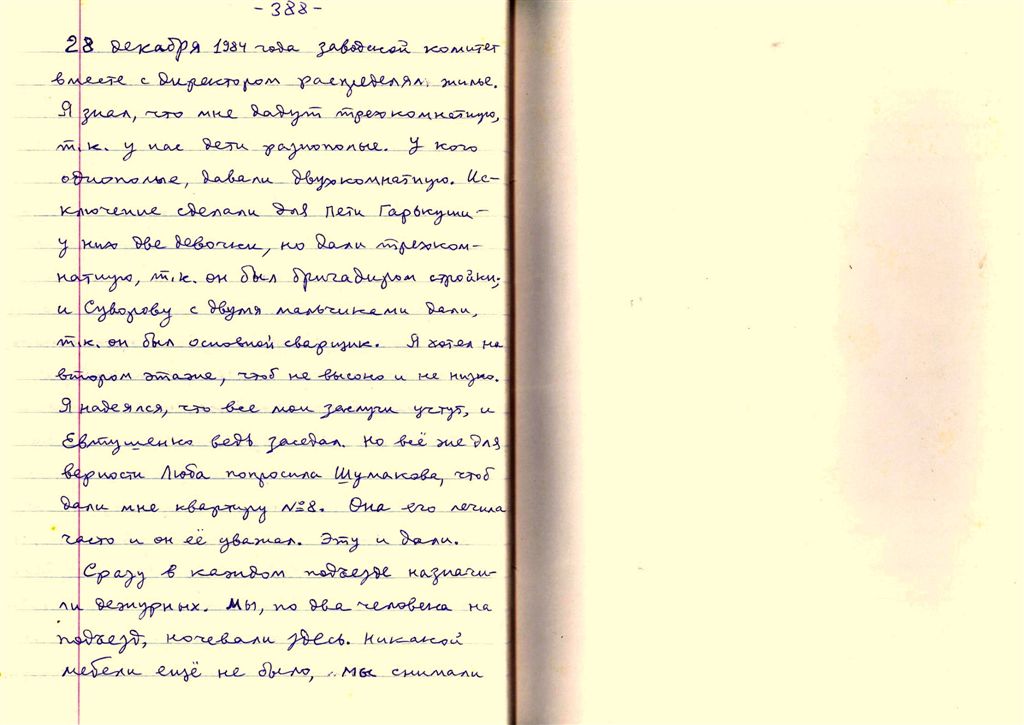 - 388 -
28 декабря 1984 года заводской комитет
вместе с директором распределял жилье.
Я знал, что мне дадут трехкомнатную,
т.к. у нас дети разнополые. У кого
однополые, давали двухкомнатную. Ис-
ключение сделали для Пети Гарькуши -
у них две девочки, но дали трехком-
натную, т.к. он был бригадиром стройки;
и Суворову с двумя мальчиками дали,
т.к. он был основной сварщик. Я хотел на
втором этаже, чтоб не высоко и не низко.
Я надеялся, что все мои заслуги учтут, и
Евтушенко ведь заседал. Но всё же для
верности Люба попросила Шумакова, чтоб
дали мне квартиру №8. Она его лечила
часто и он её уважал. Эту и дали.
Сразу в каждом подъезде назначи-
ли дежурных. Мы, по два человека на
подъезд, ночевали здесь. Никакой
мебели ещё не было, мы снимали